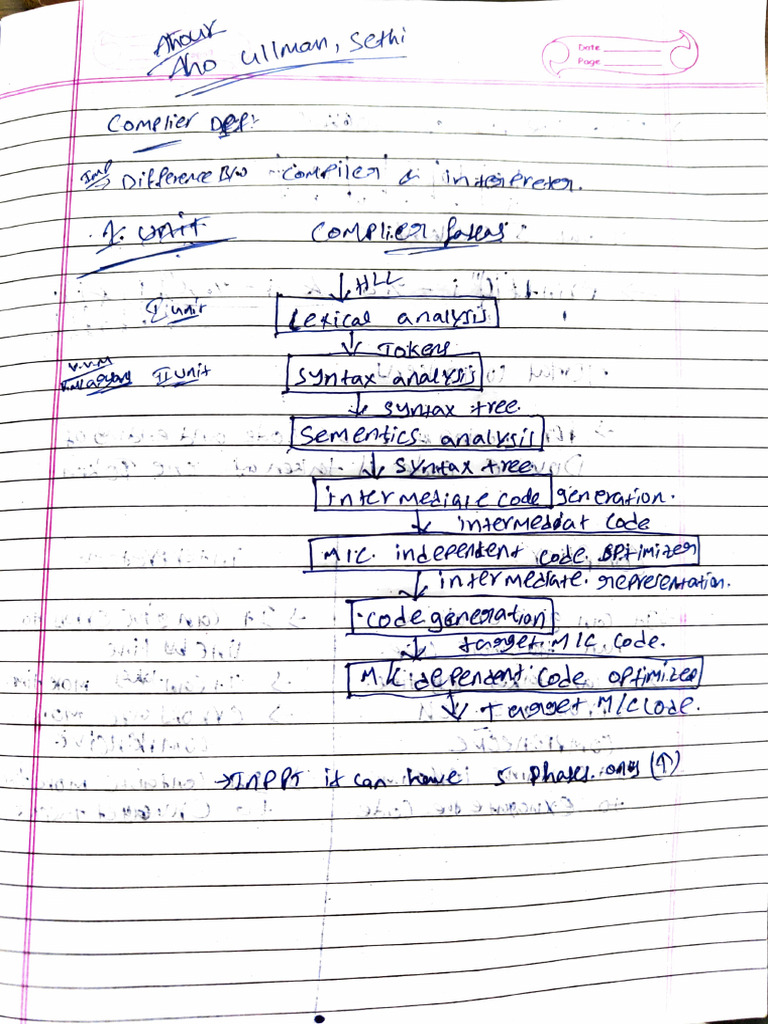 Ahour
Aho Ullman, Sethi
Date
Page
Complier Def:
Imp Difference B/w Compiler & interpreter.
1. Unit Complier fases:
↓ HLL
I unit Lexical analysis
↓ Tokens
V.V.M II unit Syntax analysis
↓ syntax tree.
Sementics analysis
↓ syntax tree
intermediate code generation.
↓ intermediat code
M/C. independent code optimizer
↓ intermediate representation.
code generation
↓ target M/C code.
M/C dependent code optimizer
↓ Target M/C code.
→ In PPT it can have 5 phases only (↑)